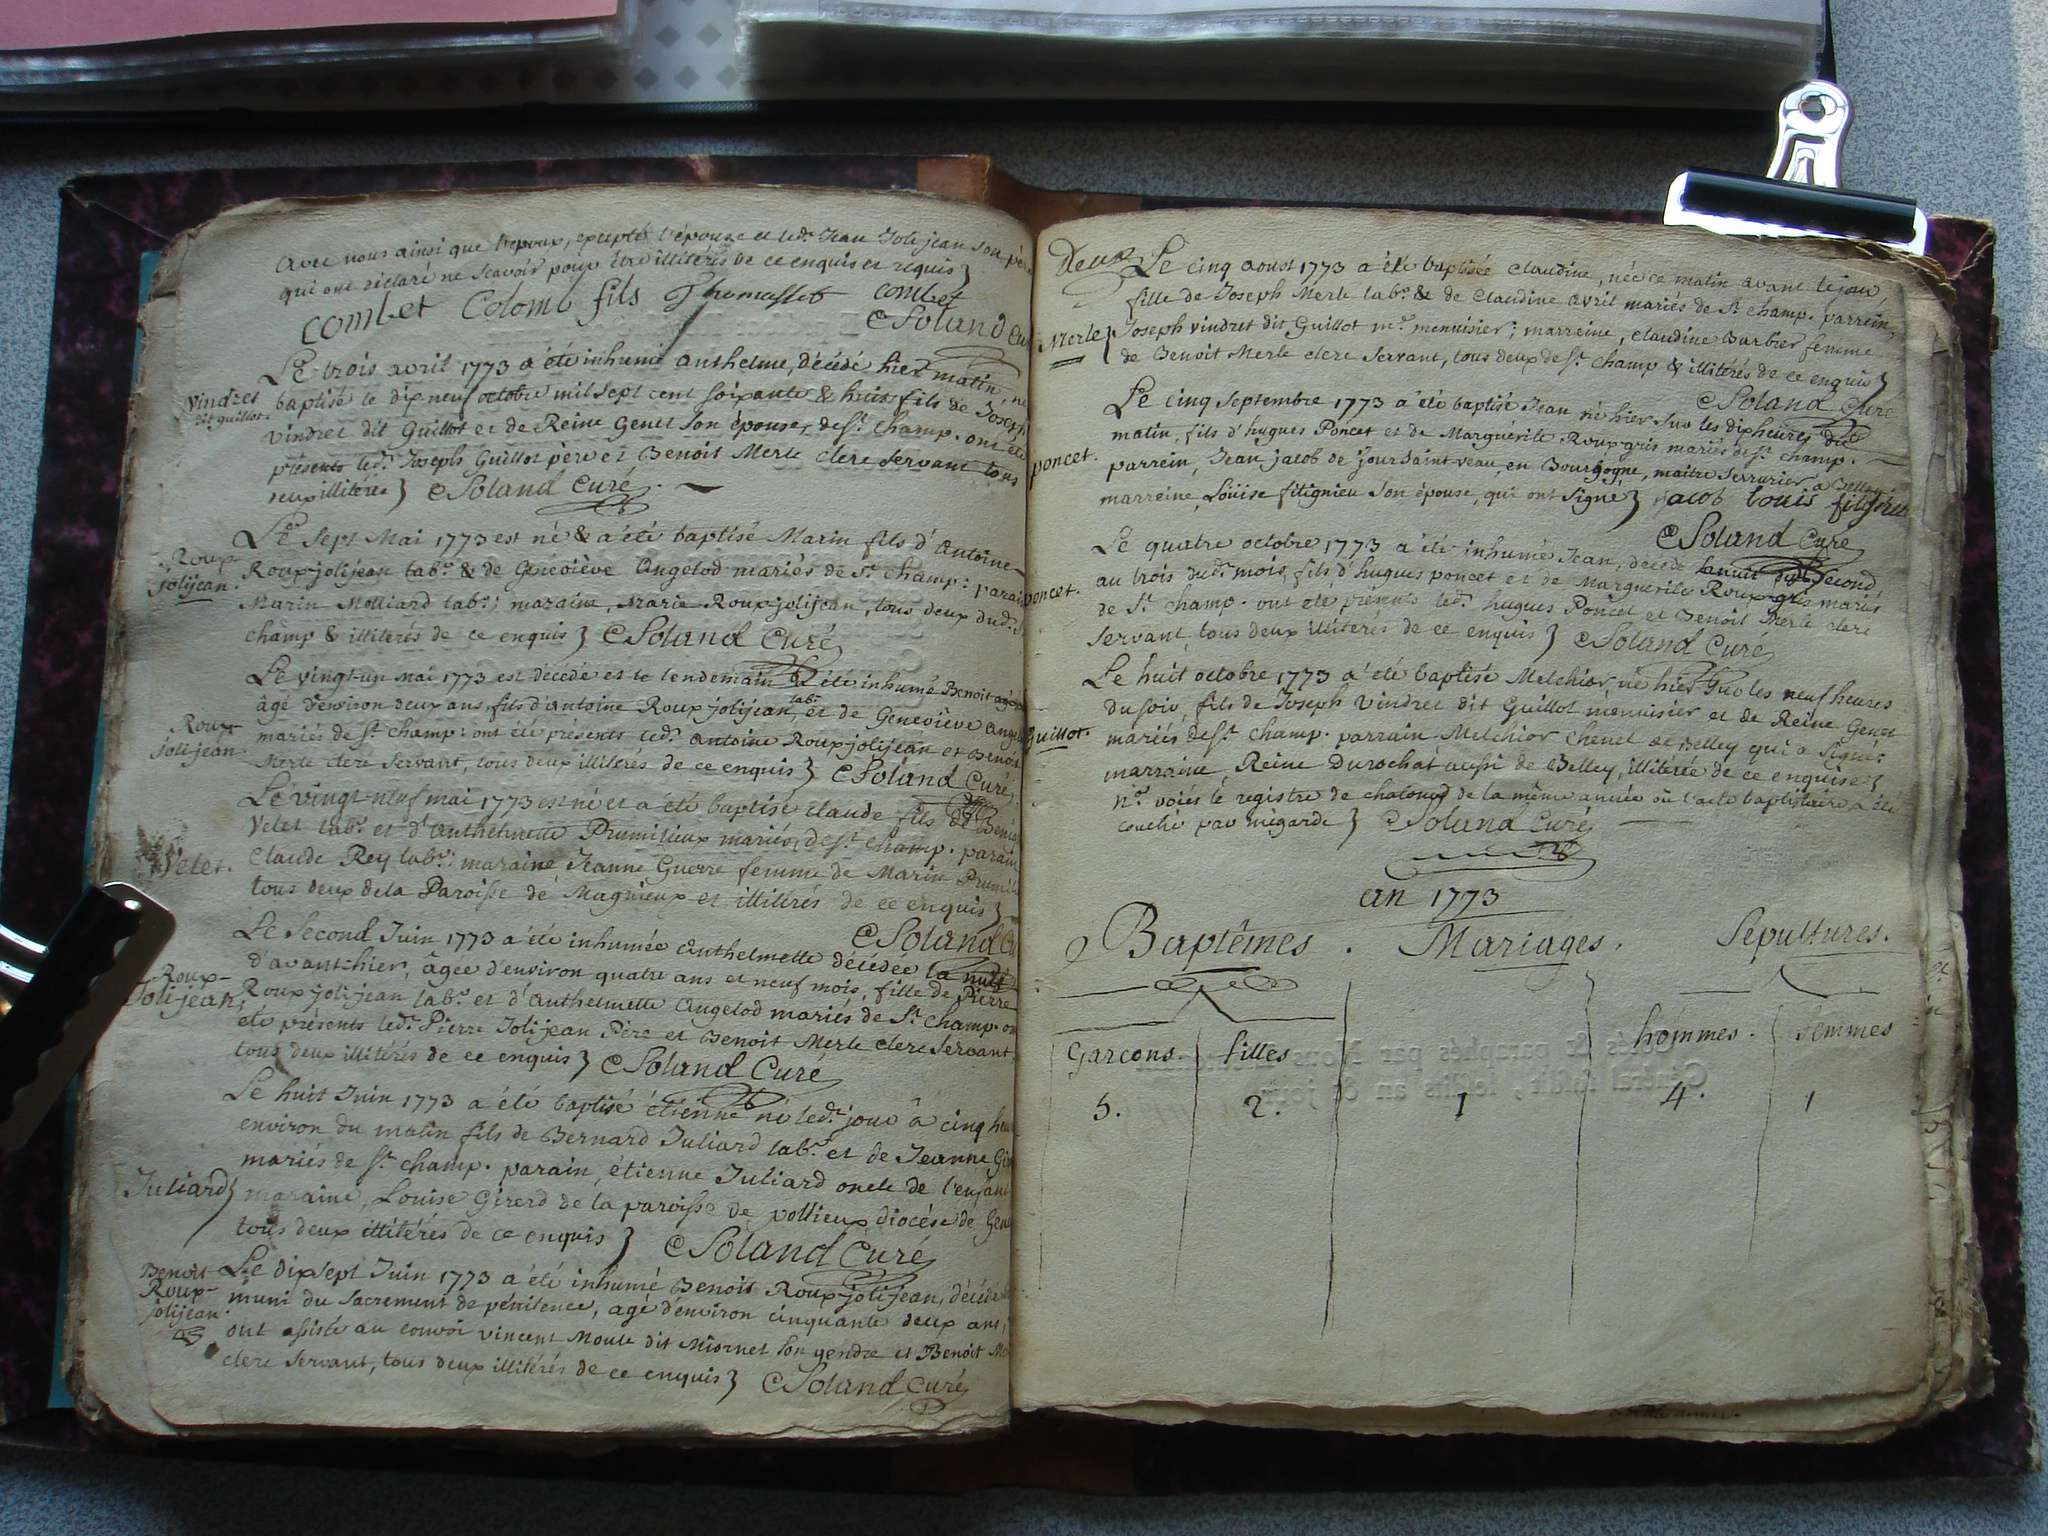 avec nous ainsi que l'epoux, excepté l'épouze et led. Jean Jolijean son père
qui ont déclaré ne scavoir pour être illitérés de ce enquis et requis
combet Colomb fils Thomasset combet
Soland Cu
Le trois avril 1773 a été inhumé anthelme, décédé hier matin, né
vindret
dit guillot.
baptisé le dix neuf octobre mil sept cent soixante & huit fils de Joseph
vindret dit Guillot et de Reine Genet son épouse, de St. champ. ont été
présents led. Joseph Guillot père et Benoit Merle clerc servant tous
deux illitérés Soland Curé
Le sept Mai 1773 est né & a été baptisé Marin fils d'antoine
Roux
jolijean.
Roux jolijean lab. & de Geneviève angelod mariés de St. champ: parain
Marin Molliard lab.; maraine, Marie Roux jolijean, tous deux dud. St.
champ & illitérés de ce enquis Soland Curé
Le vingt-un mai 1773 est décédé et le lendemain a été inhumé Benoit
âgé d'environ deux ans, fils d'antoine Roux jolijean lab. et de Geneviève ange
Roux
joli jean
mariés de St. champ: ont été présents led. antoine Roux jolijean et Benoit
Merle clerc servant, tous deux illitérés de ce enquis Soland Curé
Le vingt-neuf mai 1773 est né et a été baptisé claude fils de Benoi
Velet lab. et d'anthelmette Prumilieux mariés, de St. champ. parain
Velet.
Claude Rey lab.: maraine Jeanne Guerre femme de Marin Prumili
tous deux de la Paroisse de Magnieux et illitérés de ce enquis
Soland Cu
Le second Juin 1773 a été inhumée anthelmette décédée la nuit
d'avant-hier, âgée d'environ quatre ans et neuf mois, fille de Pierre
Roux-
Jolijean
Roux jolijean lab. et d'anthelmette angelod mariés de St. champ. on
été présents led. Pierre Jolijean Père et Benoit Merle clerc servant
tous deux illitérés de ce enquis Soland Curé
Le huit Juin 1773 a été baptisé étienne né led. jour à cinq heu
environ du matin fils de Bernard Juliard lab. et de Jeanne Gi
mariés de St. champ. parain, étienne Juliard oncle de l'enfant
Juliard
maraine, Louise Girerd de la paroisse de pollieux diocése de Gene
tous deux illitérés de ce enquis Soland Curé
Benoit
Roux-
jolijean
Le dix sept Juin 1773 a été inhumé Benoit Roux jolijean, décédé
muni du sacrement de pénitence, agé d'environ cinquante deux ans,
ont assisté au convoi vincent Moule dit Miornet son gendre et Benoit Me
clerc servant, tous deux illitérés de ce enquis Soland Curé
Deux
Le cinq aoust 1773 a été baptisée claudine, née ce matin avant le jour
fille de Joseph Merle lab. & de Claudine avril mariés de St. champ. parrein,
Merle
Joseph vindret dit Guillot m. menuisier; marreine, claudine Barbier femme
de Benoit Merle clerc servant, tous deux de St. champ & illitérés de ce enquis
Soland Curé
Le cinq septembre 1773 a été baptisé Jean né hier sur les dix heures du
matin, fils d'hugues Poncet et de Marguérite Roux-gris mariés de St. champ.
poncet.
parrein, Jean Jacob de Jour en Bourgogne, maitre serrurier a Belley
marreine, Louise filignieu son épouse, qui ont signé Jacob Louis filignieu
Soland Curé
Le quatre octobre 1773 a été inhumé Jean, décédé la nuit du second
poncet.
au trois dud. mois, fils d'hugues poncet et de Marguerite Roux-gris mariés
de St. champ. ont été présents led. hugues Poncet et Benoit Merle clerc
servant, tous deux illitérés de ce enquis Soland Curé
Le huit octobre 1773 a été baptisé Melchior, né hier sur les neuf heures
du soir, fils de Joseph Vindret dit Guillot menuisier et de Reine Genet
Guillot.
mariés de St. champ. parrain Melchior Chenet de Belley qui a signé;
marraine, Reine Durochat aussi de Belley, illitérée de ce enquise
voiés le registre de chatonod de la même année où l'acte baptistaire a été
couché par mégarde Soland Curé
an 1773
Baptêmes. Mariages. Sépultures.
Garcons. filles hommes. femmes
5. 2. 1 4. 1